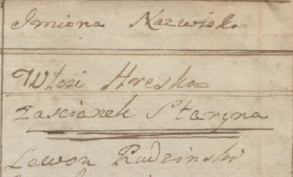 Imiona Nazwiska
Włosi Hreska
Zascianek Staryna
Lewon Rudzinski